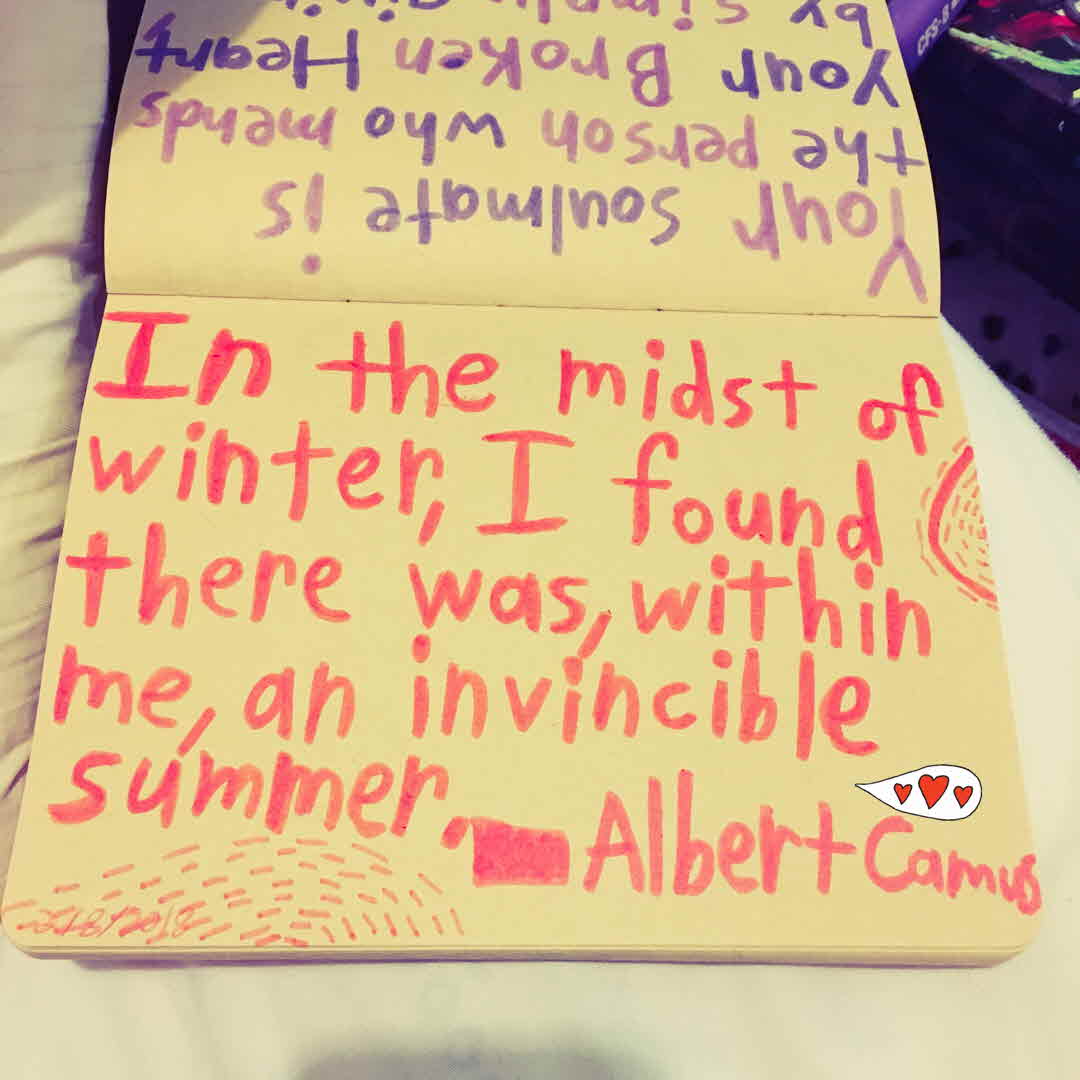 by simply
Your Broken Heart
the person who mends
Your soulmate is
In the midst of
winter, I found
there was, within
me, an invincible
summer. Albert Camus
CFS-8